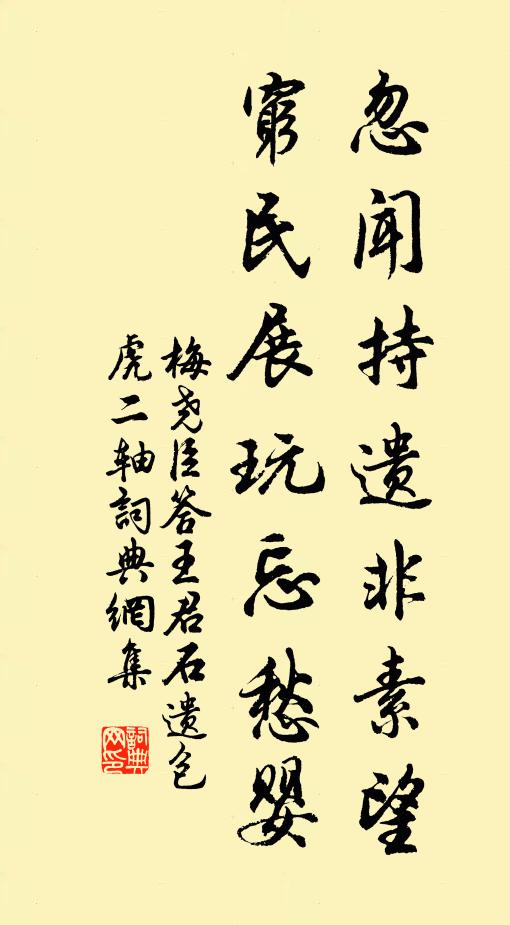 忽闻持遗非素望
窮民展玩忘愁婴
梅尧臣答王君石遗包
虎二轴詞典網集
詞典网印